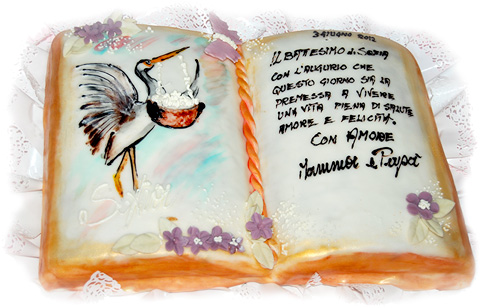 3 GIUGNO 2012
IL BATTESIMO di Sofia
CON L'AUGURIO CHE
QUESTO GIORNO SIA LA
PREMESSA A VIVERE
UNA VITA PIENA DI SALUTE
AMORE E FELICITA'.
CON AMORE
Mamma e Papà
Sofia